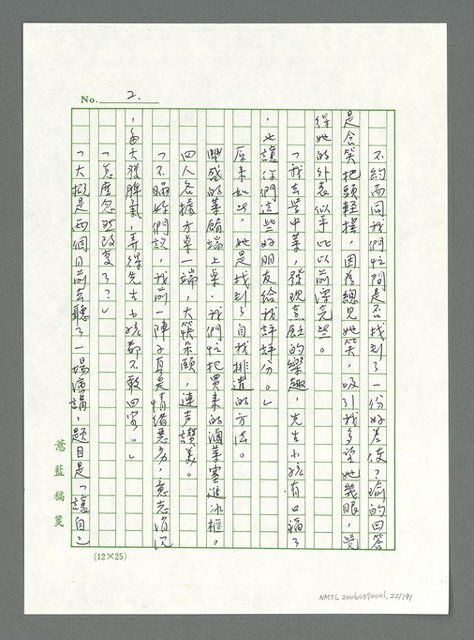 No. 2.
不約而同我們忙問是否找到了一份好差使?瑜的回答
是含笑把頭輕搖,因為總見她笑,吸引我多望她幾眼,覺
得她的外表似乎比以前漂亮些。
「我去學中菜,發現烹飪的樂趣,先生小孩有口福了
,也讓你們這些好朋友給我評評分。」
原來如此,她是找到了自我排遣的方法。
豐盛的菜餚端上桌,我們忙把買來的滷菜塞進冰櫃。
四人各據方桌一端,大筷朵頤,連声讚美。
「不瞞妳們說,我前一陣子真是情緒惡劣,意志消沉
,每天發脾氣,弄得先生小孩都不敢回家。」
「怎麼忽然改变了?」
「大概是兩個月前去聽了一場演講,題目是「讓自己
慧藍稿箋
(12×25)
NMTL 20060390001, 22/191